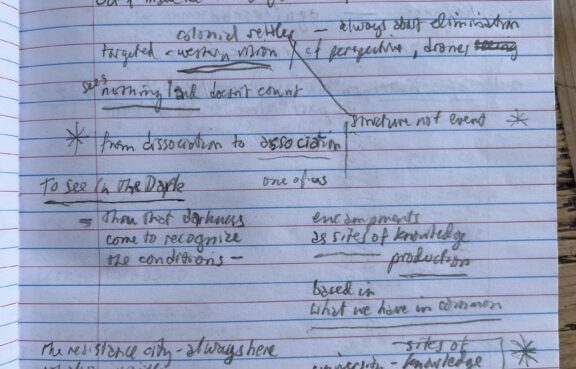 colonial settler - always about elimination
targeted - western vision / of perspective, drones seeing
sees nothing / and doesn't count
structure not event *
* from dissociation to association
To See in the Dark
one of us
= than that darkness
come to recognize
the conditions -
encampments
as sites of knowledge
production
based in
what we have in common
The resistance city - always here
sites of *
university - knowledge